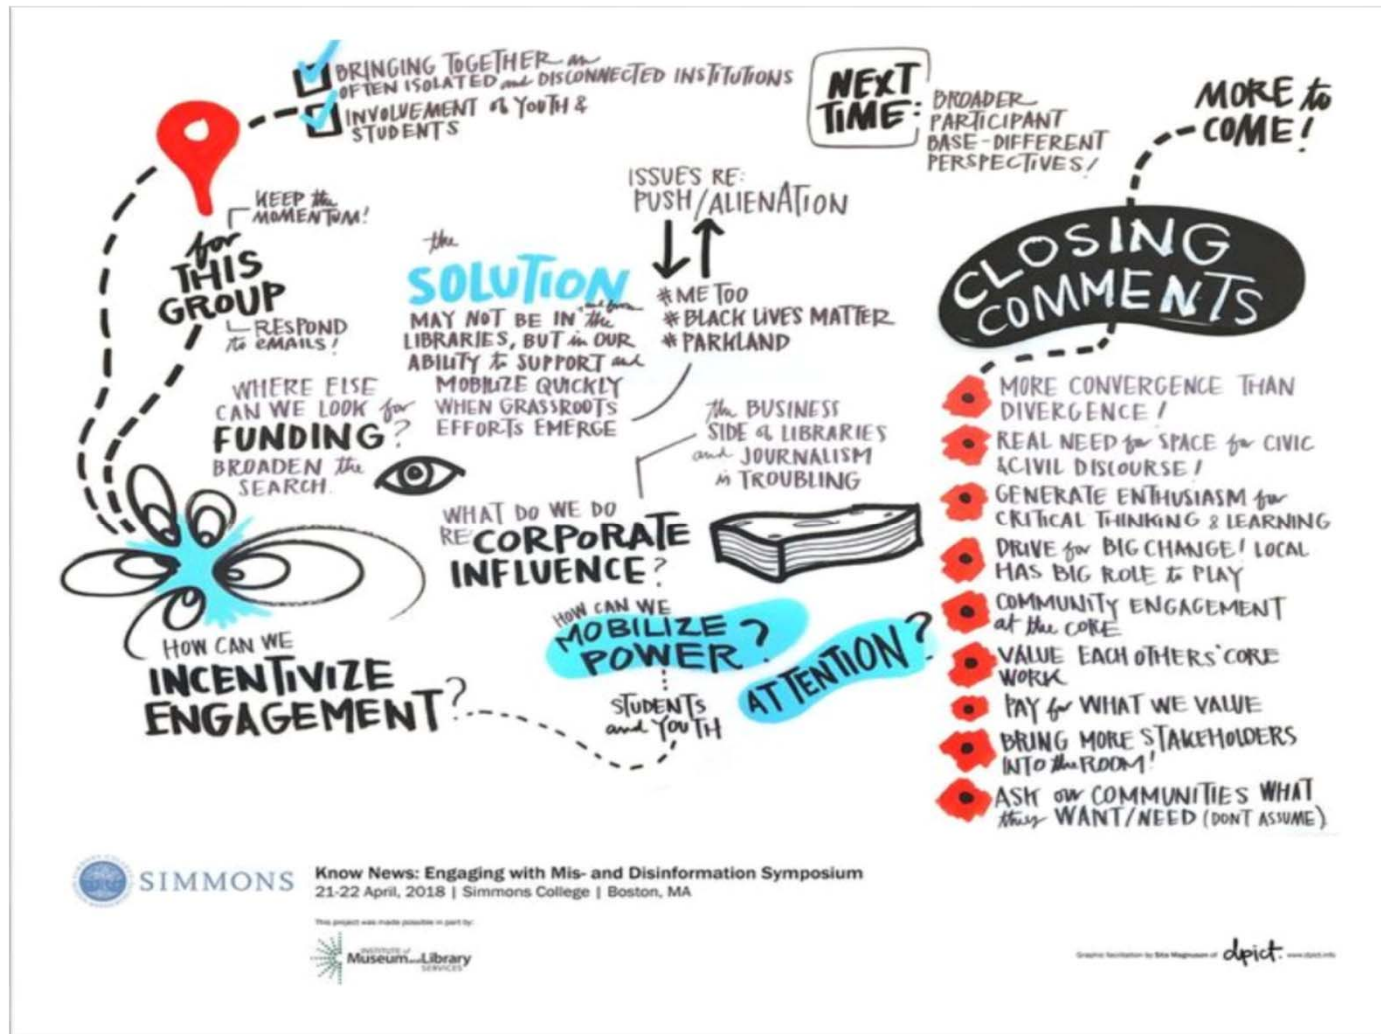 BRINGING TOGETHER an
OFTEN ISOLATED and DISCONNECTED INSTITUTIONS
INVOLVEMENT of YOUTH &
STUDENTS
NEXT
TIME:
BROADER
PARTICIPANT
BASE-DIFFERENT
PERSPECTIVES!
MORE to
COME!
KEEP the
MOMENTUM!
for
THIS
GROUP
RESPOND
to EMAILS!
ISSUES RE:
PUSH/ALIENATION
#ME TOO
#BLACK LIVES MATTER
#PARKLAND
the
SOLUTION
MAY NOT BE IN and from the
LIBRARIES, BUT in OUR
ABILITY to SUPPORT and
MOBILIZE QUICKLY
WHEN GRASSROOTS
EFFORTS EMERGE
WHERE ELSE
CAN WE LOOK for
FUNDING?
BROADEN the
SEARCH.
the BUSINESS
SIDE of LIBRARIES
and JOURNALISM
is TROUBLING
WHAT DO WE DO
RE: CORPORATE
INFLUENCE?
HOW CAN WE
MOBILIZE
POWER?
ATTENTION?
STUDENTS
and YOUTH
HOW CAN WE
INCENTIVIZE
ENGAGEMENT?
CLOSING
COMMENTS
MORE CONVERGENCE THAN
DIVERGENCE!
REAL NEED for SPACE for CIVIC
& CIVIL DISCOURSE!
GENERATE ENTHUSIASM for
CRITICAL THINKING & LEARNING
DRIVE for BIG CHANGE! LOCAL
HAS BIG ROLE to PLAY
COMMUNITY ENGAGEMENT
at the CORE
VALUE EACH OTHERS' CORE
WORK
PAY for WHAT WE VALUE
BRING MORE STAKEHOLDERS
INTO the ROOM!
ASK our COMMUNITIES WHAT
they WANT/NEED (DONT ASSUME)
SIMMONS
Know News: Engaging with Mis- and Disinformation Symposium
21-22 April, 2018 | Simmons College | Boston, MA
This project was made possible in part by:
INSTITUTE of
Museum and Library
SERVICES
Graphic facilitation by Sita Magnuson of dpict. www.dpict.info